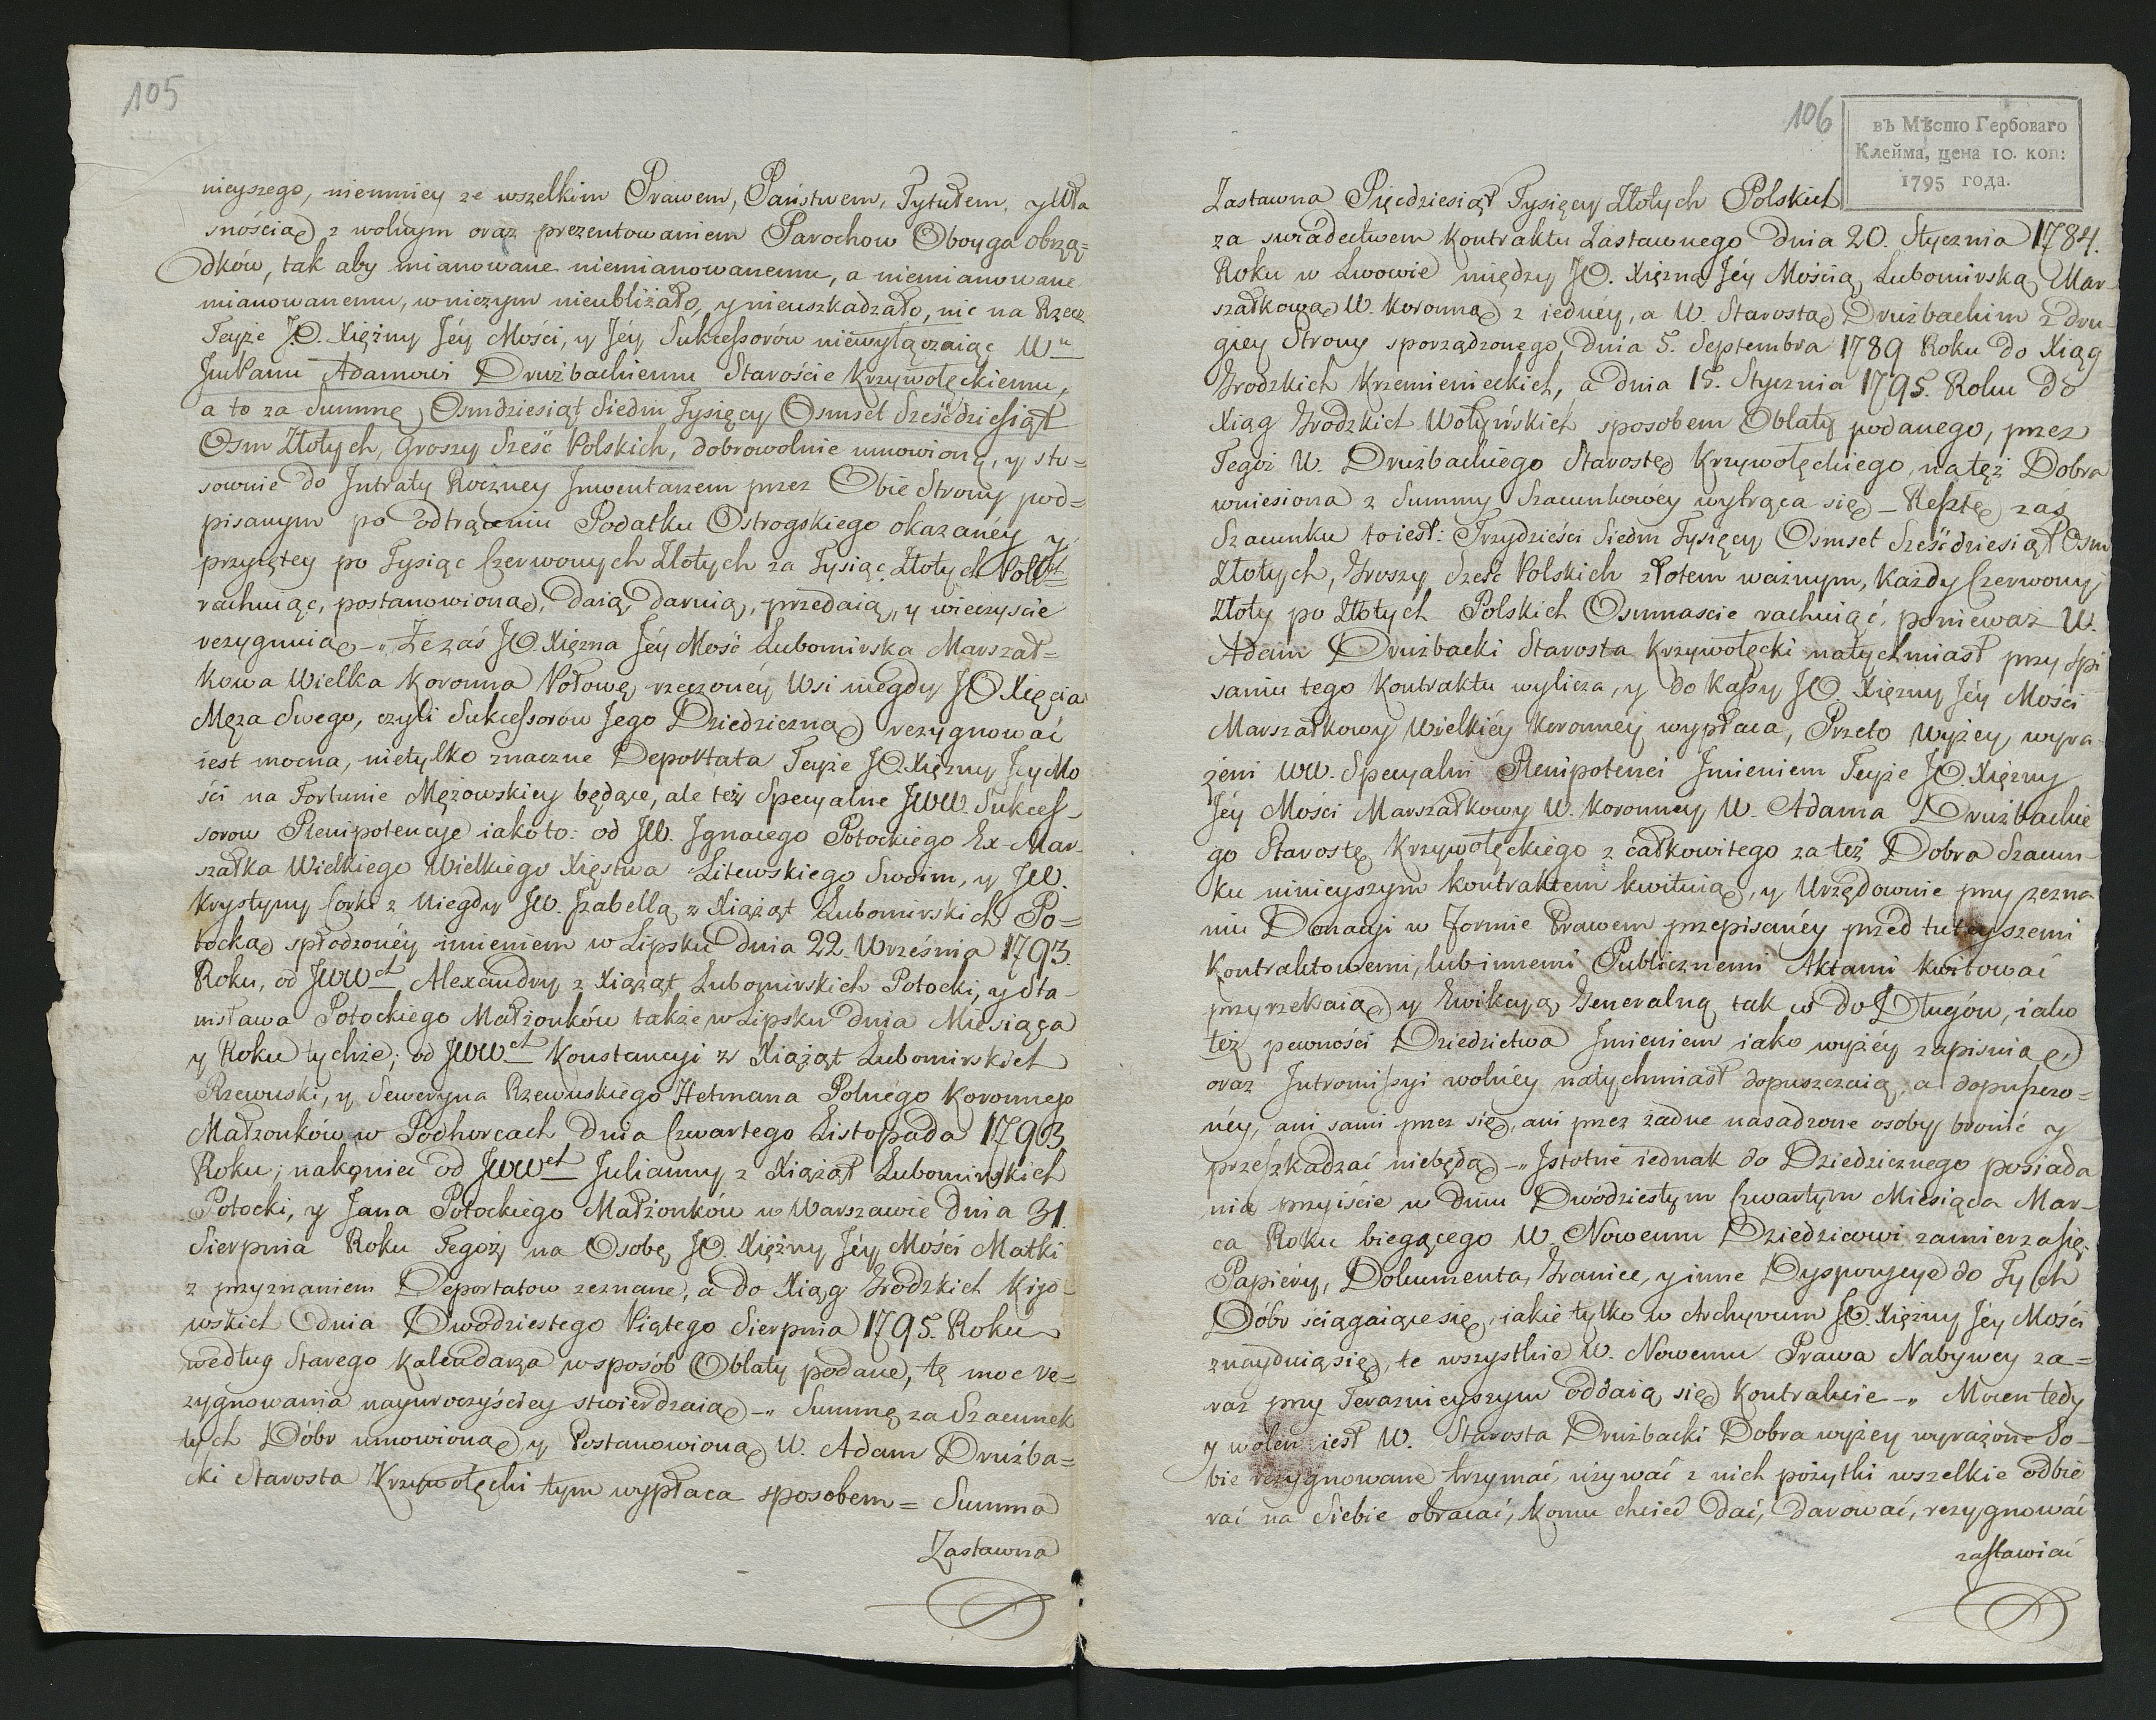 105
nieyszego, niemniey ze wszelkim Prawem, Państwem, Tytułem, y Wła
snością z wolnym oraz prezentowaniem Parochow Oboyga obrzą=
dków, tak aby mianowane niemianowanemu, a niemianowane
mianowanemu, w niczym nieubliżało, y nieuszkadzało, nic na Rzecz
Teyże JO. Xiężny Jéy Mości, y Jéy Sukcessorów niewyłączaiąc Wu
JmPanu Adamowi Drużbackiemu Staroście Krzywołęckiemu,
a to za Summę Osmdziesiąt Siedm Tysięcy Osmset Sześćdziesiąt
Osm Złotych, Groszy Sześć Polskich, dobrowolnie umowioną, y sto=
sownie do Jntraty Roczney Jnwentarzem przez Obie Strony pod=
pisanym po odtrąceniu Podatku Ostrogskiego okazanéy y
przyiętey po Tysiąc Czerwonych Złotych za Tysiąc Złotych Polch
rachuiąc, postanowioną, daią, daruią, przedaią, y wieczyście
rezygnuią -„ Że zaś JO. Xiężna Jéy Mość Lubomirska Marszał=
kowa Wielka Koronna Połowę rzeczonéy Wsi niegdy JO Xięcia
Męża Swego, czyli Sukcessorów Jego Dziedziczną rezygnować
iest mocna, nietylko znaczne Deportata Teyże JO. Xiężny Jey Mo
ści na Fortunie Mężowskiey będące, ale też Specyalne JWW. Sukces-
sorow Plenipotencye iako to: od JW. Jgnacego Potockiego Ex-Mar-
szałka Wielkiego Wielkiego Xięstwa Litewskiego Swoim, y JW.
Krystyny Corki z Niegdy JW. Jzabellą z Xiążąt Lubomirskich Po=
tocką spłodzonéy imieniem w Lipsku Dnia 22. Września 1793.
Roku, od JWWch Alexandry z Xiążąt Lubomirskich Potocki, y Sta-
nisława Potockiego Małżonków także w Lipsku dnia Miesiąca
y Roku tychże; od JWWch Konstancyi z Xiążąt Lubomirskich
Rzewuski, y Seweryna Rzewuskiego Hetmana Polnégo Koronnego
Małżonków w Podhorcach Dnia Czwartego Listopada 1793
Roku; nakoniec od JWWch Julianny z Xiążąt Lubomirskich
Potocki, y Jana Potockiego Małżonków w Warszawie Dnia 31.
Sierpnia Roku Tegoż na Osobę JO. Xiężny Jéy Mości Matki
z przyznaniem Deportatow zeznane, a do Xiąg Grodzkich Kijo-
wskich Dnia Dwódziestego Piątego Sierpnia 1795. Roku
według Starego Kalendarza w sposób Oblaty podane, tę moc re=
zygnowania nayuroczyściey stwierdzaią -„ Summę za Szacunek
tych Dóbr umowioną, y Postanowioną W. Adam Drużba=
cki Starosta Krzywołęcki tym wypłaca sposobem = Summa
Zastawna
106
въ Мѣсто Гербоваго
Клейма, цена 10. коп:
1795 года.
Zastawna Pięćdziesiąt Tysięcy Złotych Polskich
za swiadectwem Kontraktu Zastawnego Dnia 20. Stycznia 1784.
Roku w Lwowie między JO. Xiężną Jéy Mością Lubomirską Mar-
szałkową W. Koronną z iednéy, a W. Starostą Drużbackim z dru-
giey Strony sporządzonego, Dnia 5. Septembra 1789 Roku do Xiąg
Grodzkich Krzemienieckich, a dnia 15. Stycznia 1795. Roku do
Xiąg Grodzkich Wołyńskich sposobem Oblaty podanego, przez
Tegoż W. Drużbackiego Starostę Krzywołęckiego, na też Dobra
wniesiona z Summy Szacunkowéy wytrąca się - Resztę zaś
Szacunku to iest: Trzydzieści Siedm Tysięcy Osmset Sześćdziesiąt Osm
Złotych, Groszy Sześć Polskich złotem ważnym, Każdy Czerwony
Złoty po Złotych Polskich Osmnascie rachuiąc, ponieważ W.
Adam Drużbacki Starosta Krzywołęcki natychmiast przy spi
saniu tego Kontraktu wylicza, y do Kassy JO. Xiężny Jéy Mości
Marszałkowy Wielkiéy Koronnéy wypłaca, Przeto Wyżey wyra
żeni WW. Specyalni Plenipotenci Jmieniem Teyże JO. Xiężny
Jéy Mości Marszałkowy W. Koronney W. Adama Drużbackie
go Starostę Krzywołęckiego z całkowitego za też Dobra Szacun-
ku ninieyszym Kontraktem kwituią, y Urzędownie przy zezna
niu Donacyi w Formie Prawem przepisanéy przed tuteyszemi
Kontraktowemi, lub innemi Publicznemi Aktami Kwitować
przyrzekaią, y Ewikcyą Generalną tak co do Długów, iako
też pewności Dziedzictwa Jmieniem iako wyżéy zapisuią,
oraz Jntromissyi wolnéy natychmiast dopuszczaią, a dopuszczo=
néy, ani sami przez się, ani przez żadne nasadzone osoby bronić y
przeszkadzać niebędą -„ Jstotne iednak do Dziedzicznego posiada
nia przyiście w dniu Dwódziestym Czwartym Miesiąca Mar-
ca Roku biegącego W. Nowemu Dziedzicowi zamierza się.
Papiéry, Dokumenta, Granice, y inne Dyspozycye do Tych
Dóbr ściągaiące się, iakie tylko w Archyvum JO. Xiężny Jéy Mości
znayduią się, te wszystkie W. Nowemu Prawa Nabywcy za=
raz przy Teraznieyszym oddaią się Kontrakcie -„ Mocen tedy
y wolen iest W. Starosta Drużbacki Dobra wyżey wyrażone So-
bie rezygnowane trzymać, używać z nich pożytki wszelkie odbie
rać na Siebie obracać, Komu chcieć dać, darować, rezygnować
zastawiać